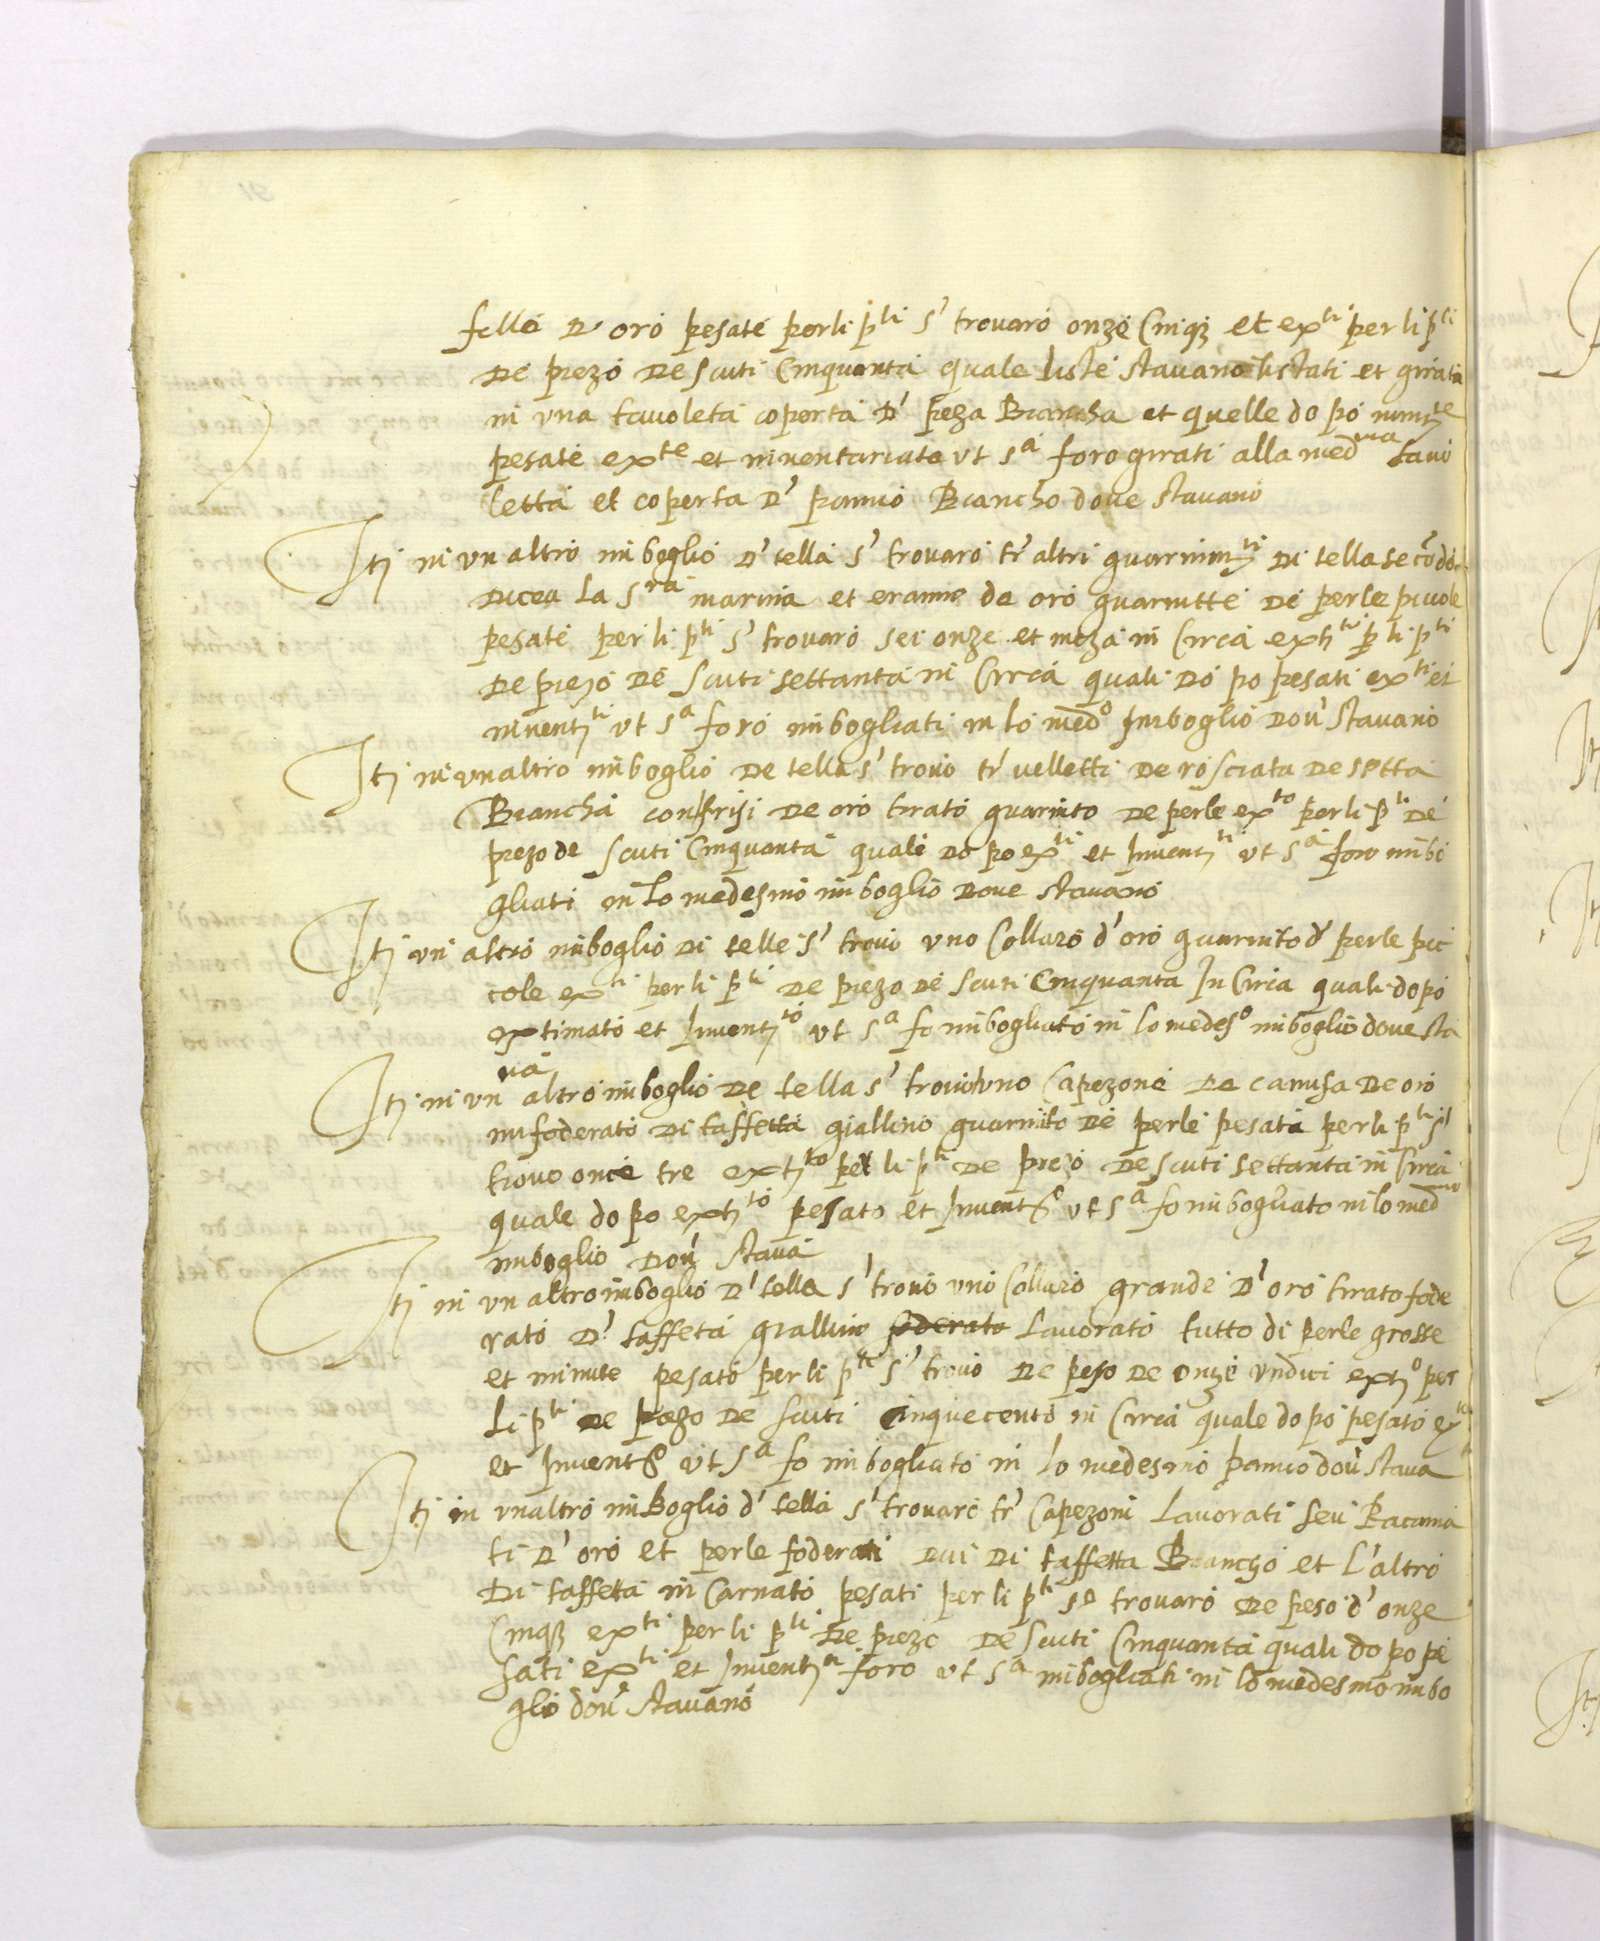 felle d' oro pesate per li p.ti s' trovaro onze Cinq; et ex.ti per li p.ti
de prezo de scuti Cinquanta quale liste stavano listati et girati
in una tavoleta coperta d' peza Biancha et quelle do po
pesate ex.te et inventariate ut s.a foro girati alla med.ma tavo
letta et coperta d' panno Biancho dove stavano
Itj in un altro imboglio d' tella s' trovaro tr' altri guarnim.ti di tella secōdo
dicea la S.ra marina et eranno de oro guarnitte de perle picole
pesate per li p.ti s' trovaro sei onze et meza in Circa ext.ti p li p.ti
de prezo de scuti settanta in Circa quali do po pesati ex.ti et
invent.ti ut s.a foro imbogliati in lo med.o Imboglio dov' stavano
Itj in un altro imboglio de tella s' trovo tr' velletti de rosciata de setta
Biancha con frisi de oro tirato guarnito de perle ex.to per li p.ti de
prezo de scuti Cinquanta quale do po ex.ti et Invent.ti ut s.a foro imbo
gliati in lo medesmo imboglio dove stavano
Itj un altro imboglio di telle s' trovo uno Collaro d' oro guarnito d' perle pic
cole ex.ti per li p.ti de prezo de scuti Cinquanta In Circa quali do po
extimato et Invent.to ut s.a fo imbogliato in lo medes.o imboglio dove sta
va
Itj in un altro imboglio de tella s' trovo uno Capezone de camisa de oro
infoderato di taffetta giallino guarnito de perle pesata per li p.ti s'
trovo once tre ext.to per li p.ti de prezo de scuti settanta in Circa
quale do po ext.to pesato et Invent.o ut s.a fo imbogliato in lo med.mo
imboglio dov' stava
Itj in un altro imboglio d' tella s' trovo uno Collaro grande d' oro tirato fode
rato d' taffeta giallino foderato lavorato tutto di perle grosse
et minute pesato per li p.ti s' trovo de peso de onze undici ext.o per
li p.ti de prezo de scuti cinquecento in Circa quale do po pesato ex.to
et Invent.o ut s.a fo imbogliato in lo medesmo panno dov' stava
Itj in un altro imboglio d' tella s' trovaro tr' Capezoni lavorati seu Racama
ti d' oro et perle foderati dui di taffetta Biancho et l' altro
di taffetta in Carnato pesati per li p.ti se trovaro de peso d' onze
Cinq; ex.ti per li p.ti de prezo de scuti Cinquanta quali do po pe
sati ex.ti et Invent.ti foro ut s.a imbogliati in lo medesmo imbo
glio dov' stavano